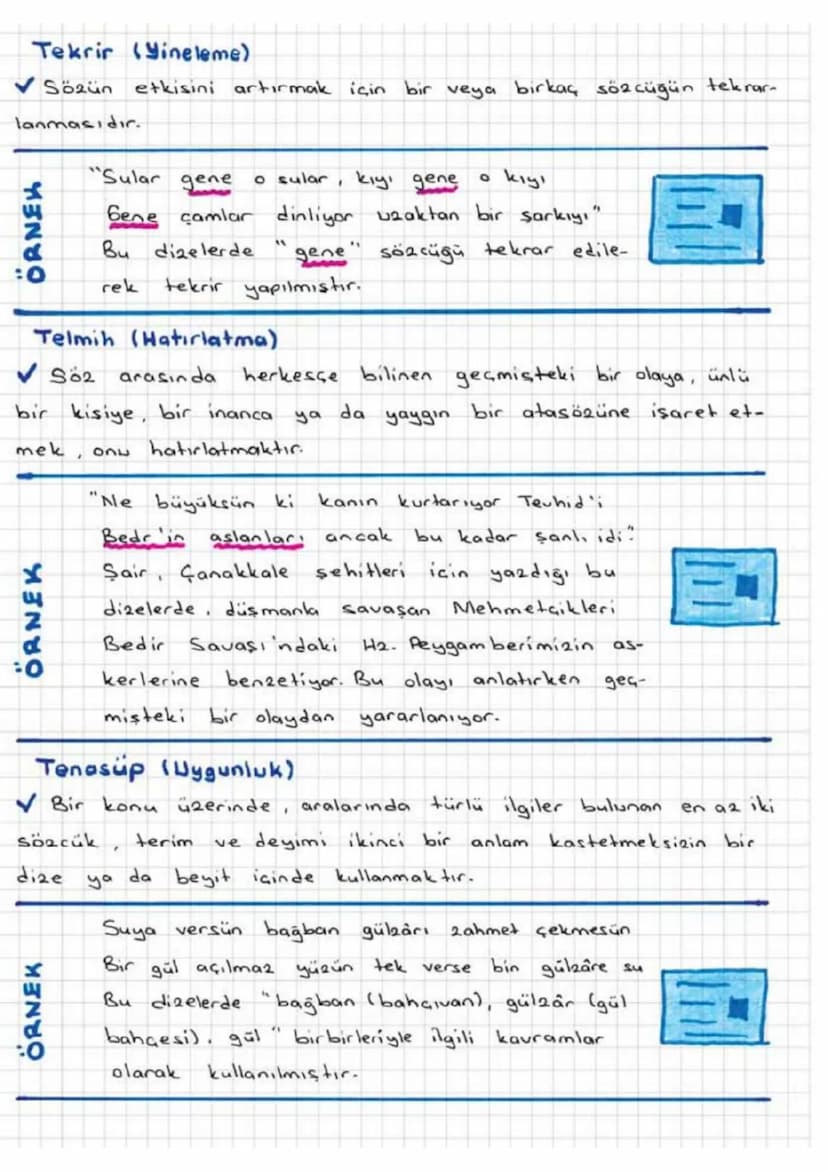 Tekrir (Yineleme)
✓ Sözün etkisini artırmak için bir veya birkaç sözcüğün tekrar-
lanmasıdır.
ÖRNEK
"Sular gene o sular, kıyı gene o kıyı
Gene çamlar dinliyor uzaktan bir şarkıyı"
Bu dizelerde "gene" sözcüğü tekrar edile-
rek tekrir yapılmıştır.
Telmih (Hatırlatma)
✓ Söz arasında herkesçe bilinen geçmişteki bir olaya, ünlü
bir kişiye, bir inanca ya da yaygın bir atasözüne işaret et-
mek, onu hatırlatmaktır.
ÖRNEK
"Ne büyüksün ki kanın kurtarıyor Tevhid'i
Bedr'in aslanları ancak bu kadar şanlı idi"
Şair, Çanakkale şehitleri için yazdığı bu
dizelerde, düşmanla savaşan Mehmetçikleri
Bedir Savaşı'ndaki Hz. Peygamberimizin as-
kerlerine benzetiyor. Bu olayı anlatırken geç-
mişteki bir olaydan yararlanıyor.
Tenasüp (Uygunluk)
✓ Bir konu üzerinde, aralarında türlü ilgiler bulunan en az iki
sözcük, terim ve deyimi ikinci bir anlam kastetmeksizin bir
dize ya da beyit içinde kullanmaktır.
ÖRNEK
Suya versün bağban gülzârı zahmet çekmesün
Bir gül açılmaz yüzün tek verse bin gülzâre su
Bu dizelerde "bağban (bahçıvan), gülzâr (gül
bahçesi), gül" birbirleriyle ilgili kavramlar
olarak kullanılmıştır.